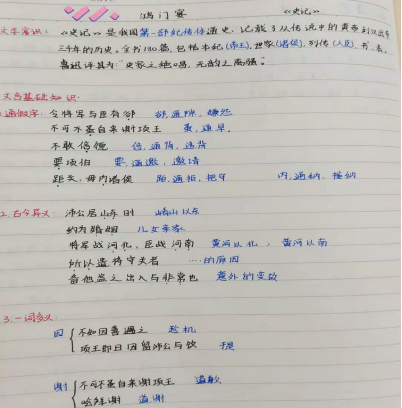 鸿门宴 《史记》
文学常识：《史记》是我国第一部纪传体通史，记载了从传说中的黄帝到汉武帝
三千年的历史。全书130篇，包括本纪(帝王)，世家(诸侯)，列传(人臣)，书，表。
鲁迅评其为"史家之绝唱，无韵之离骚。"
文言基础知识：
1.通假字：令将军与臣有郤 郤，通隙，嫌怨
不可不蚤自来谢项王 蚤，通早。
不敢倍德 倍，通背，违背
要项伯 要，通邀，邀请
距关，毋内诸侯 距，通拒，把守 内，通纳，接纳
2.古今异义：沛公居山东时 崤山以东
约为婚姻 儿女亲家
将军战河北，臣战河南 黄河以北，黄河以南
所以遣将守关者 ……的原因
备他盗之出入与非常也 意外的变故
3.一词多义：
因 不如因善遇之 趁机
项王即日因留沛公与饮 于是
谢 不可不蚤自来谢项王 道歉
哙拜谢 道谢